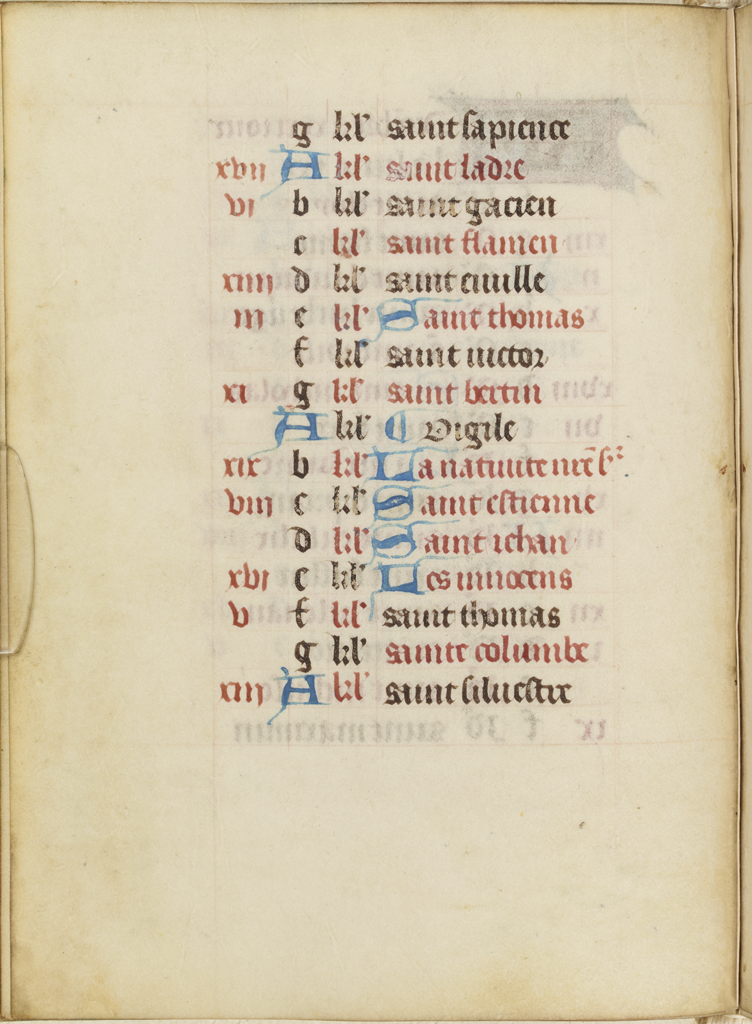 g kl' saint sapience
xvij A kl' saint ladre
vj b kl' saint gacien
c kl' saint flamen
xiiij d kl' saint ciuille
iij e kl' Saint thomas
f kl' saint uictor
xj g kl' saint bertin
A kl' Vigile
xix b kl' La natiuite nre sr
viij c kl' Saint estienne
d kl' Saint iehan
xvj e kl' Les innocens
v f kl' saint thomas
g kl' sainte columbe
xiij A kl' saint siluestre